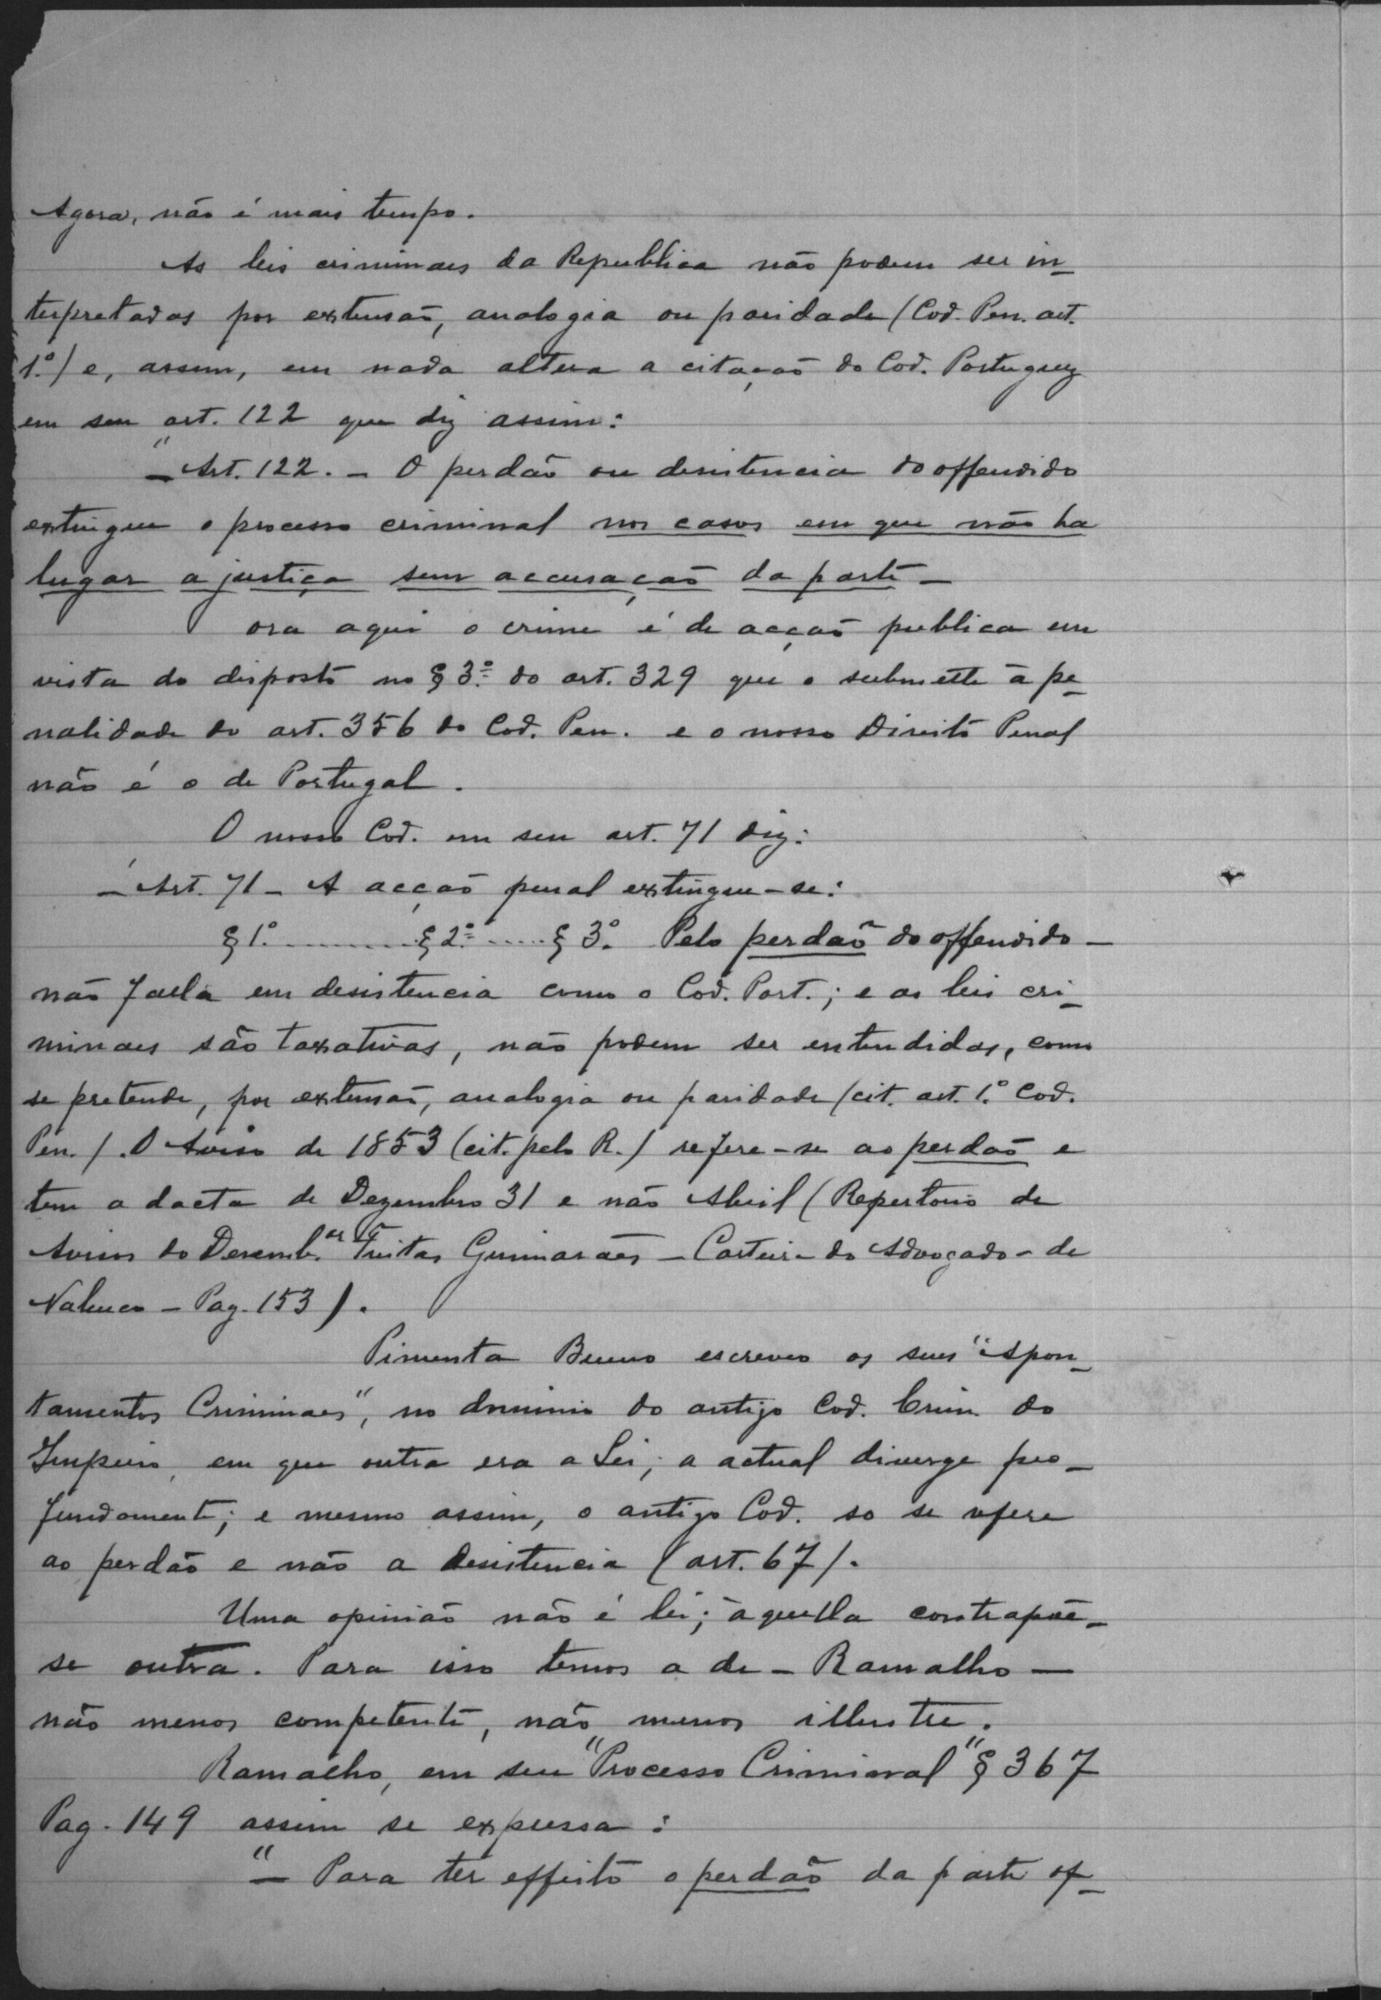 Agora, não é mais tempo.
As leis criminaes da Republica não podem ser in-
terpretadas por extensão, analogia ou paridade (Cod. Pen. art.
1.º) e, assim, em nada altera a citação do Cod. Portuguez
em seu art. 122 que diz assim:
"- Art. 122. - O perdão ou desistencia do offendido
extingue o processo criminal nos casos em que não ha
lugar a justiça sem accusação da parte -
ora aqui o crime é de acção publica em
vista do disposto no § 3º do art. 329 que o submette á pe-
nalidade do art. 356 do Cod. Pen. e o nosso Direito Penal
não é o de Portugal.
O nosso Cod. em seu art. 71 diz:
- Art. 71 - A acção penal extingue-se:
§ 1º. ......... § 2º ..... § 3º. Pelo perdão do offendido -
não falla em desistencia como o Cod. Port.; e as leis cri-
minaes são taxativas, não podem ser entendidas, como
se pretende, por extensão, analogia ou paridade (cit. art. 1.º Cod.
Pen.). O Aviso de 1853 (cit. pelo R.) refere-se ao perdão e
tem a dacta de Dezembro 31 e não Abril (Repertorio de
Avisos do Desemb.or Freitas Guimarães - Carteira do Advogado - de
Nabuco - Pag. 153).
Pimenta Bueno escreveo os seus "Apon-
tamentos Criminaes", no dominio do antigo Cod. Crim. do
Imperio, em que outra era a Lei; a actual diverge pro-
fundamente; e mesmo assim, o antigo Cod. so se refere
ao perdão e não a desistencia (art. 67).
Uma opinião não é lei; áquella contrapõe-
se outra. Para isso temos a de - Ramalho -
não menos competente, não menos illustre.
Ramalho, em seu "Processo Criminal" § 367
Pag. 149 assim se expressa:
"- Para ter effeito o perdão da parte of-